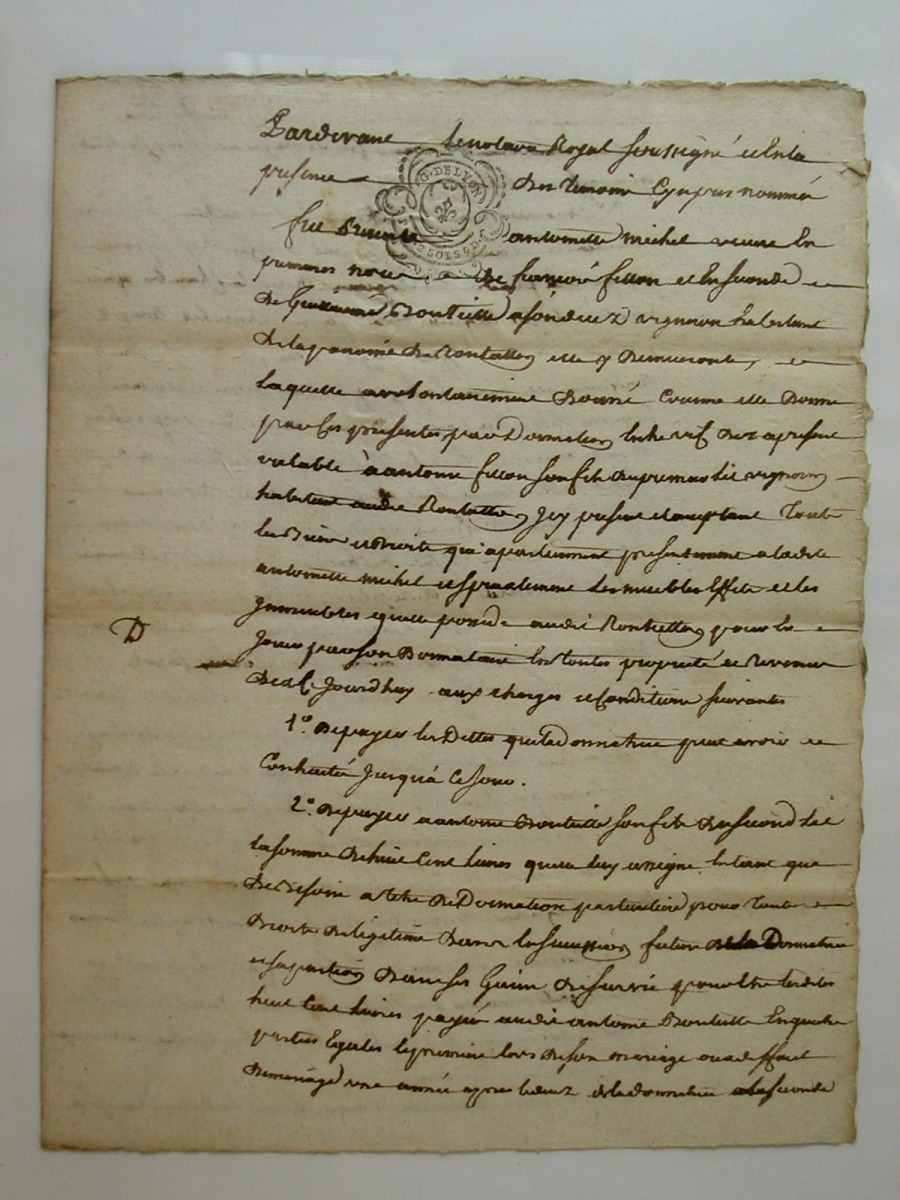 Pardevant le notaire Royal soussigné et en la
presence des temoins cy apres nommés
G. DE LYON
2 SOLS 4 D.
fut presente antoinette michel veuve en
premieres noces de francois fillon et en seconde
de Guillaume Bouteille a son decez vigneron habitant
de la paroisse de elle y demeurante,
laquelle a volontairement donné comme elle donne
par ces presentes par donnation entre vifs dez a present
valable à antoine fillon son fils du premier lit vigneron
habitant audit Jcy present et acceptant touts
les biens et droits qui apartiennent presentement a ladite
antoinette michel et specialement les meubles effets et les
Jmmeubles quelle possede audit pour en
Jouir par son donnataire en toutes proprieté et revenus
de ce Jourdhuy aux charges et conditions suivantes
1.° de payer les dettes que la donnatrice peut avoir
contracté Jusqu'à ce Jour.
2.° de payer a antoine Bouteille son fils du second lit
la somme de huit cent livres quelle luy assigne en tant que
de besoin a titre de donnation particuliere pour touts
droits de legitime dans la succession future de la donnatrice
et sa portion dans ses Gains de survie pour etre lesdites
huit cent livres payé audit antoine Bouteille en quatre
parties egales la premiere lors de son mariage ou a deffaut
de mariage une année apres le decez de la donnatrice la seconde
D